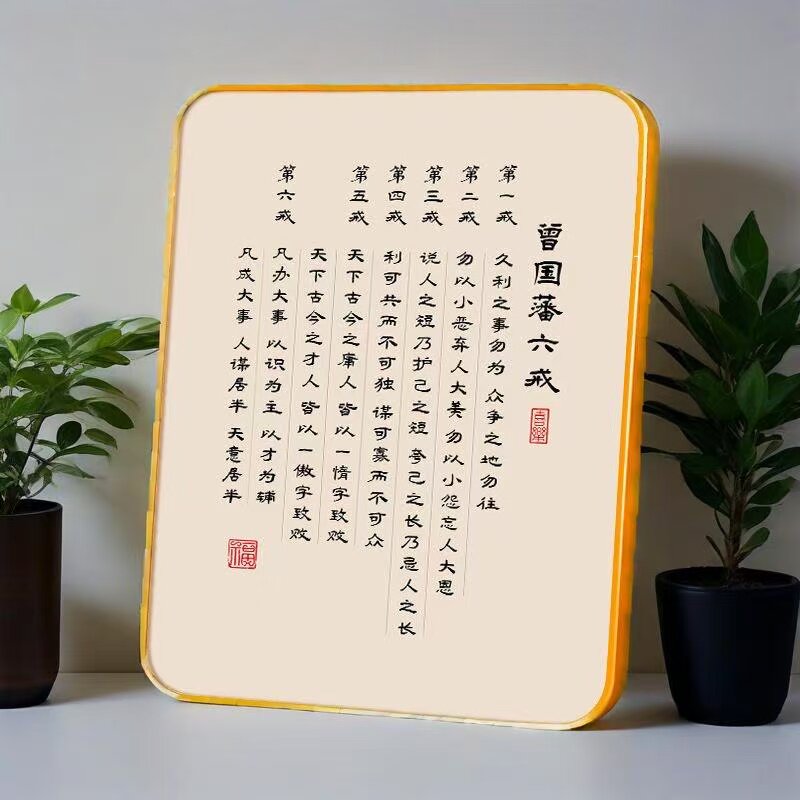 曾国藩六戒
喜樂
第一戒 久利之事勿为 众争之地勿往
第二戒 勿以小恶弃人大美 勿以小怨忘人大恩
第三戒 说人之短乃护己之短 夸己之长乃忌人之长
第四戒 利可共而不可独 谋可寡而不可众
第五戒 天下古今之庸人 皆以一惰字致败
天下古今之才人 皆以一傲字致败
第六戒 凡办大事 以识为主 以才为辅
凡成大事 人谋居半 天意居半
福